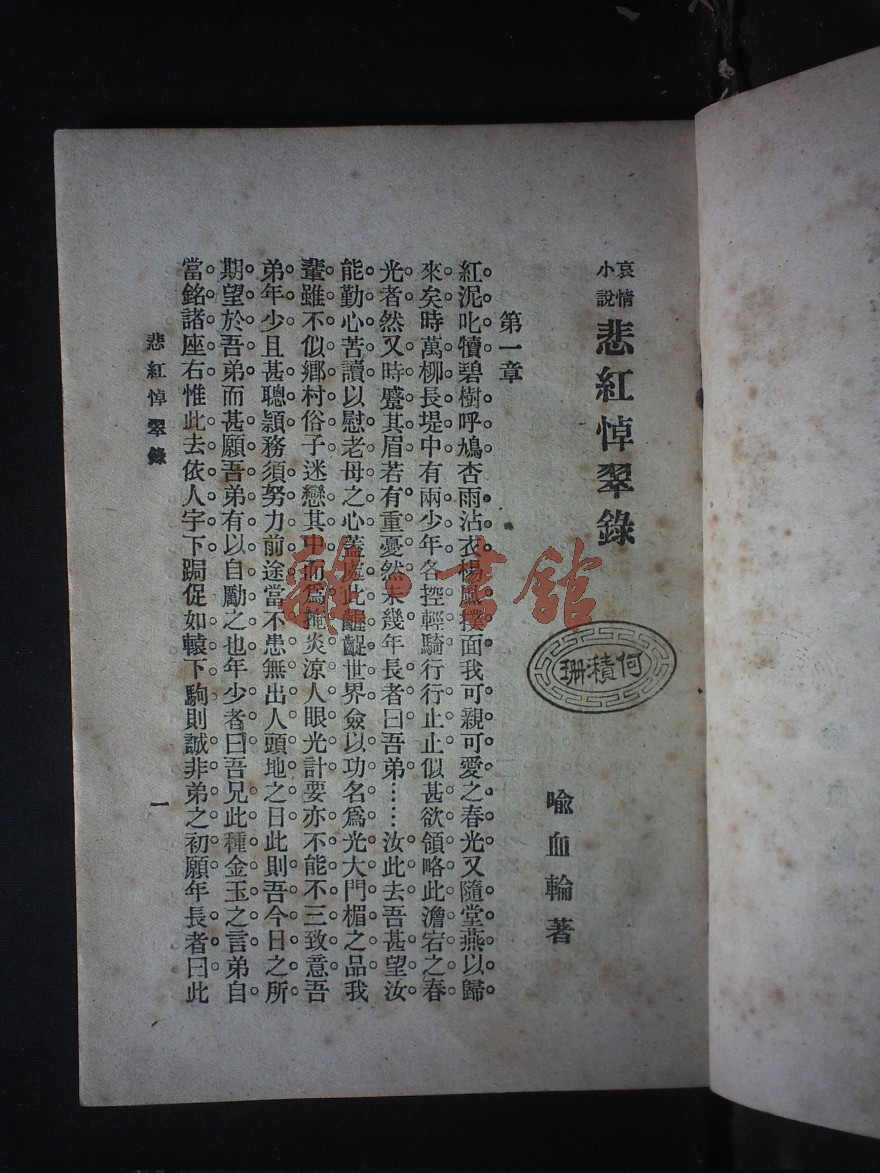 哀情
小說
悲紅悼翠錄
何積珊
喩血輪著
第一章
紅泥叱犢碧樹呼鳩杏雨沾衣楊風撲面我可親可愛之春光又隨堂燕以歸
來矣時萬柳長堤中有兩少年各控輕騎行行止止似甚欲領略此澹宕之春
光者然又時蹙其眉若有重憂然未幾年長者曰吾弟⋯⋯汝此去吾甚望汝
能勤心苦讀以慰老母之心蓋處此齷齪世界僉以功名爲光大門楣之品我
輩雖不似鄉村俗子迷戀其中而爲掩炎涼人眼光計要亦不能不三致意吾
弟年少且甚聰穎務須努力前途當不患無出人頭地之日此則吾今日之所
期望於吾弟而甚願吾弟有以自勵之也年少者曰吾兄此種金玉之言弟自
當銘諸座右惟此去依人宇下跼促如轅下駒則誠非弟之初願年長者曰此
悲紅悼翠錄
一
雜·書館